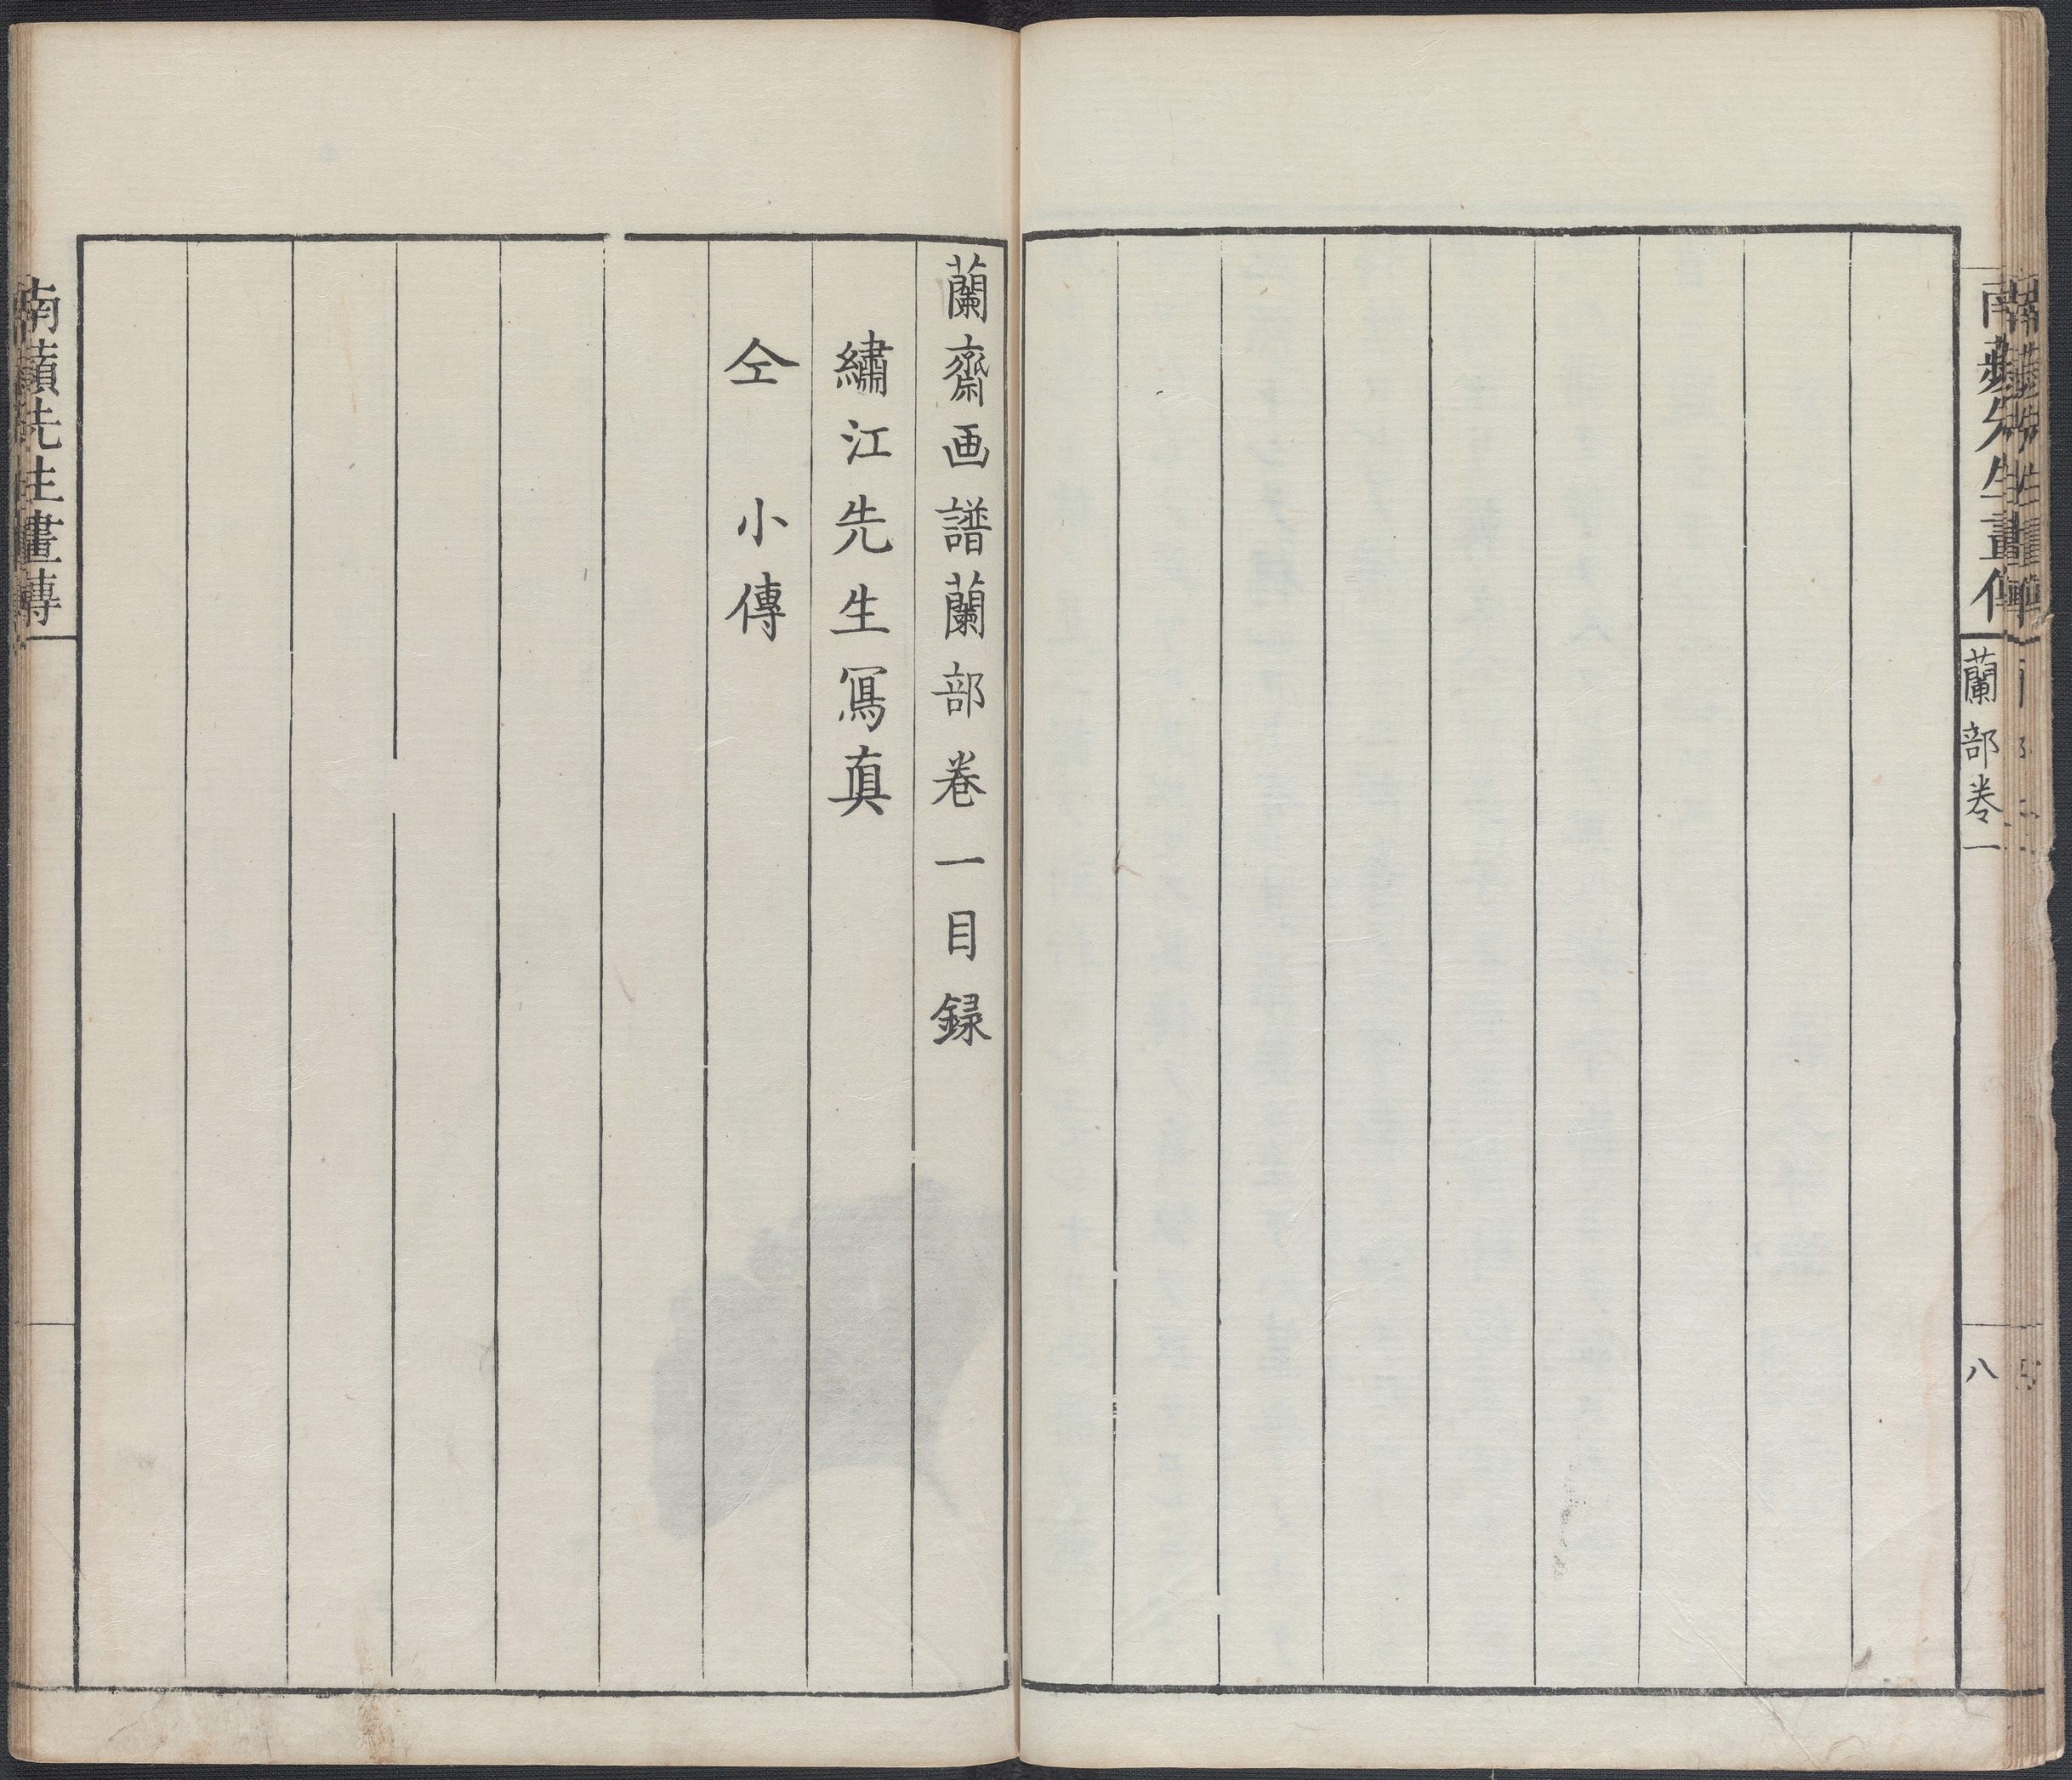 蘭部卷一
八
蘭齋画譜蘭部卷一目録
繡江先生寫真
仝 小傳
南蘋先生畫傳